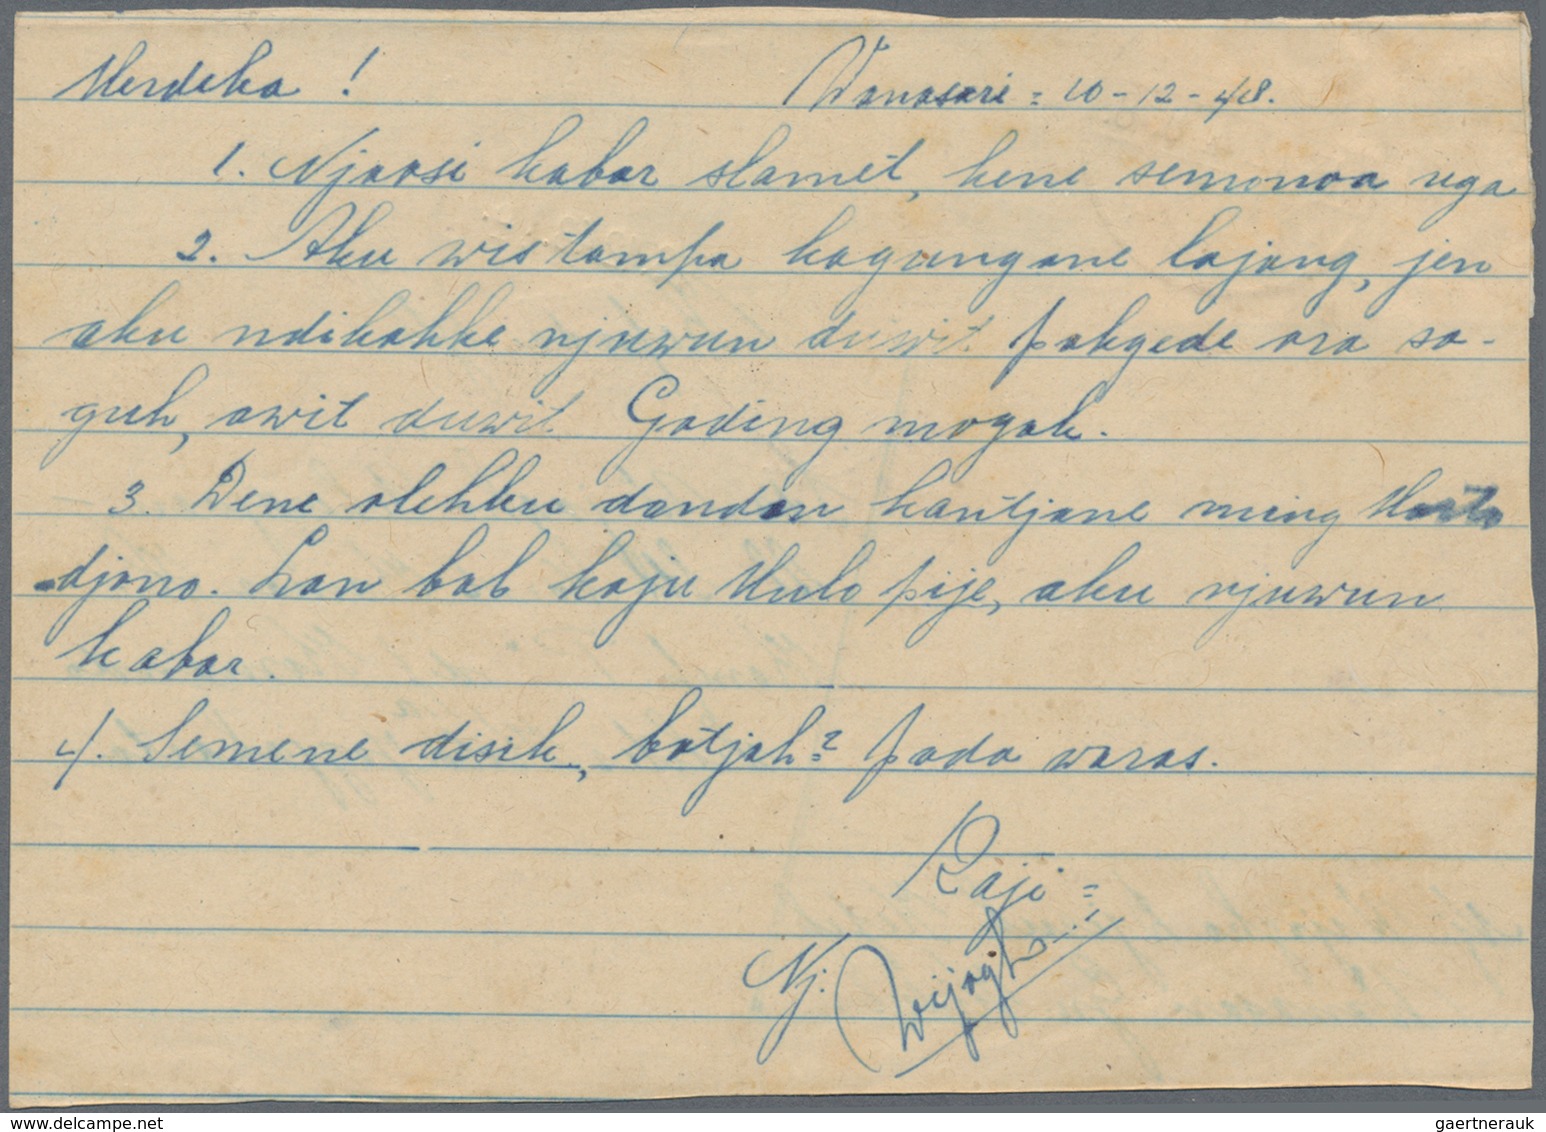 Merdeka ! Wanasari = 10-12-48.
1. Njaosi kabar slamet, kene semonoa uga
2. Aku wis tampa kagungane lajang, jen
aku ndikakke njuwun duwit pakgede ora sa-
guh, awit duwit Gading mogak.
3. Dene olehku dandan kantjane ming Marto
djono. Lan bab kaju Mulo pije, aku njuwun
kabar.
4. Semene disik, botjah² pada waras.
Raji =
Nj.
gaertnerauk @ delcampe.net